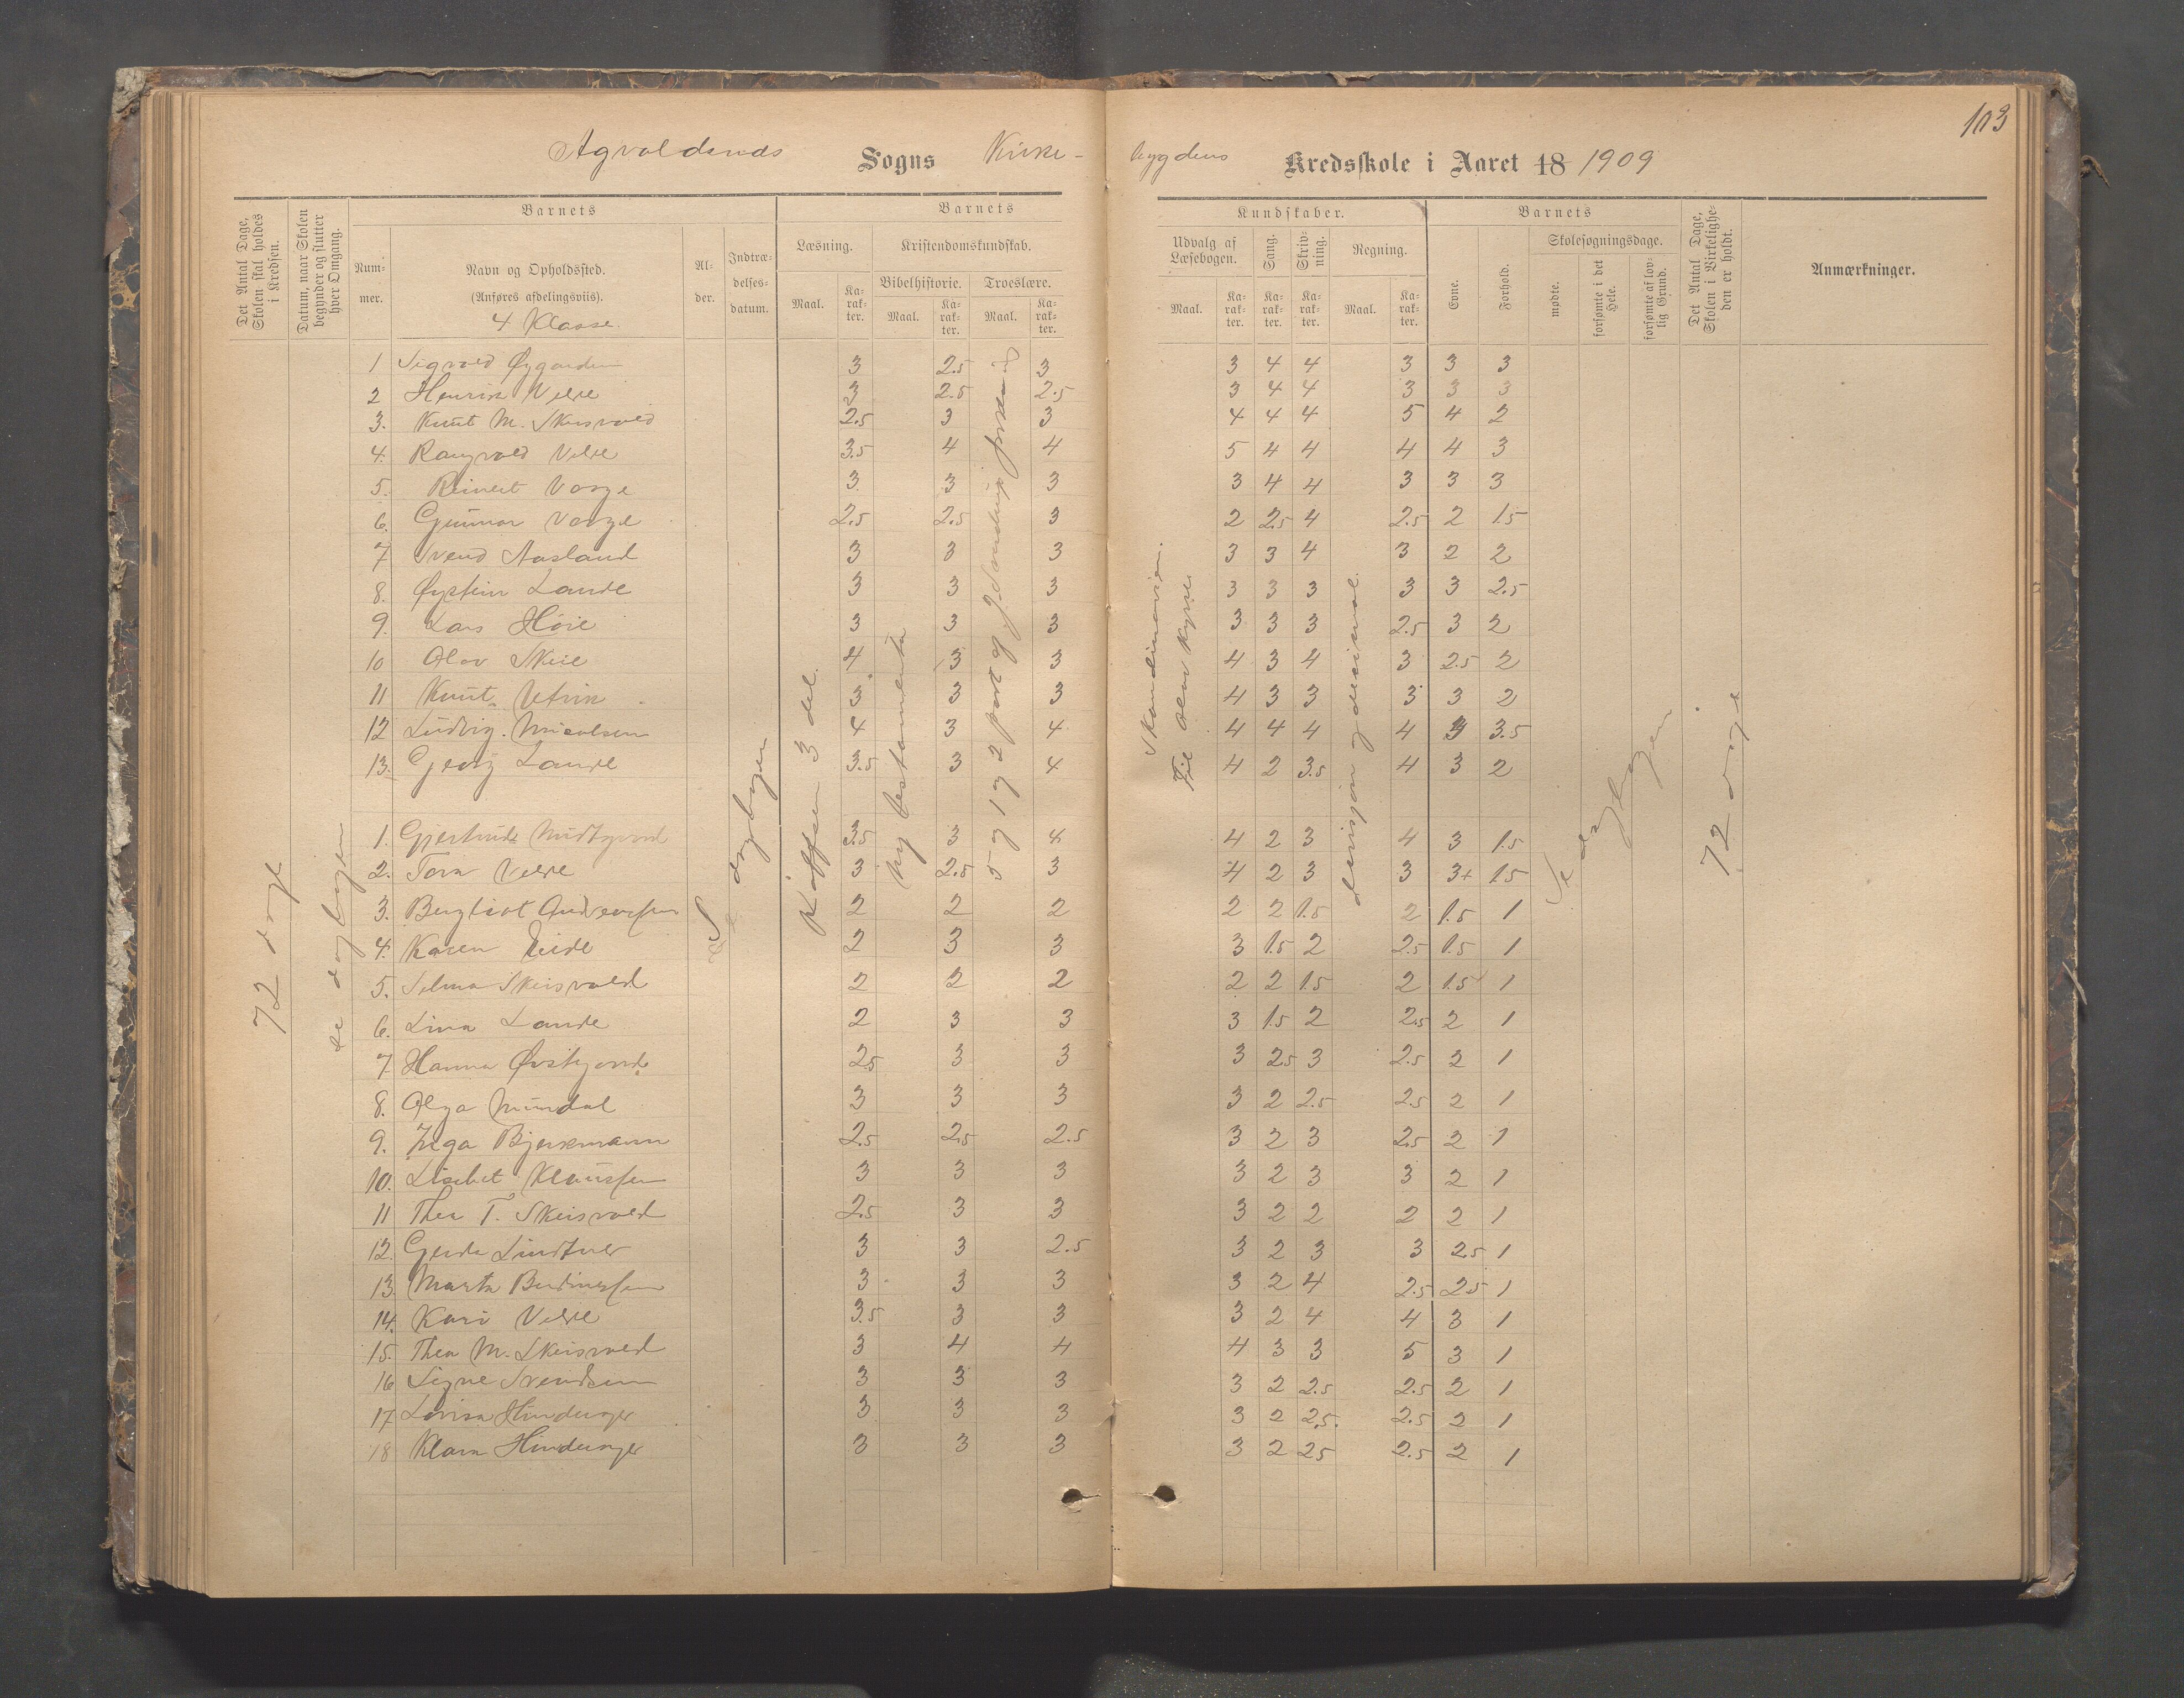 103
Sogns Kirke-
bygdens Kredsskole i Aaret 18 1909
Det Antal Dage, Skolen skal holdes i Kredsen.
Datum, naar Skolen begynder og slutter hver Omgang.
Barnets
Nummer.
Navn og Opholdssted.
(Anføres afdelingsviis).
4 Klasse.
Alder.
Indtrædelsesdatum.
Barnets
Læsning.
Maal.
Karakter.
Kristendomskundskab.
Bibelhistorie.
Maal.
Karakter.
Troeslære.
Maal.
Karakter.
Kundskaber.
Udvalg af Læsebogen.
Maal.
Karakter.
Sang.
Karakter.
Skrivning.
Karakter.
Regning.
Maal.
Karakter.
Barnets
Evne.
Forhold.
Skolesøgningsdage.
mødte.
forsømte i det Hele.
forsømte af lovlig Grund.
Det Antal Dage, Skolen i Virkeligheden er holdt.
Anmærkninger.
72 dage
se dagbogen
Se dagbogen
3 del.
Ny testamente
5 og 1 og 2 part af
Skandinavien.
Til
divisjon og desimal.
Se dagbogen
72 dage
1 Sigvald 3 2.5 3 3 4 4 3 3 3
2 Henrik Velde 3 2.5 2.5 3 4 4 3 3 3
3. Knut M. Skeisvold 2.5 3 3 4 4 4 5 4 2
4. Rangvald Velde 3.5 4 4 5 4 4 4 4 3
5. Reinert Vaage 3 3 3 3 4 4 3 3 3
6. Gunnar Vaage 2.5 2.5 3 2 2.5 4 2.5 2 1.5
7 Svend Aasland 3 3 3 3 3 4 3 2 2
8. Øystein Lande 3 3 3 3 3 3 3 3 2.5
9. Lars Høie 3 3 3 3 3 3 2.5 3 2
10 Olav Skeie 4 3 3 4 3 4 3 2.5 2
11 Knut 3 3 3 4 3 3 3 3 2
12 Ludvig 4 3 4 4 4 4 4 3.5
13. Georg Lande 3.5 3 4 4 2 3.5 4 3 2
1. Gjertrude 3.5 3 4 4 2 3 4 3 1.5
2. Tora Velde 3 2.5 3 4 2 3 3 3+ 1.5
3. Bergliot Andreassen 2 2 2 2 2 1.5 2 1.5 1
4. Karen Eide 2 3 3 3 1.5 2 2.5 1.5 1
5. Selma Skeisvold 2 2 2 2 2 1.5 2 1.5 1
6. Lina Lande 2 3 3 3 1.5 2 2.5 2 1
7. Hanna 2.5 3 3 3 2.5 3 2.5 2 1
8. Olga Mundal 3 3 3 3 2 2.5 2.5 2 1
9. Inga Bjerkmann 2.5 2.5 2.5 3 2 3 2.5 2 1
10. Lisebet Klaussen 3 3 3 3 2 3 3 2 1
11 Thea T. Skeisvold 2.5 3 3 3 2 2 2 2 1
12. Gerda Lindtner 3 3 2.5 3 2 3 3 2.5 1
13. Marta 3 3 3 3 2 4 2.5 2.5 1
14. Kari Velde 3.5 3 3 3 2 4 4 3 1
15. Thea M. Skeisvold 3 4 4 4 3 3 5 3 1
16 Signe Svendsen 3 3 3 3 2 2.5 2.5 2 1
17 Lovisa Hinderager 3 3 3 3 2 2.5. 2.5 2 1
18 Klara Hinderager 3 3 3 3 2 25 2.5 2 1